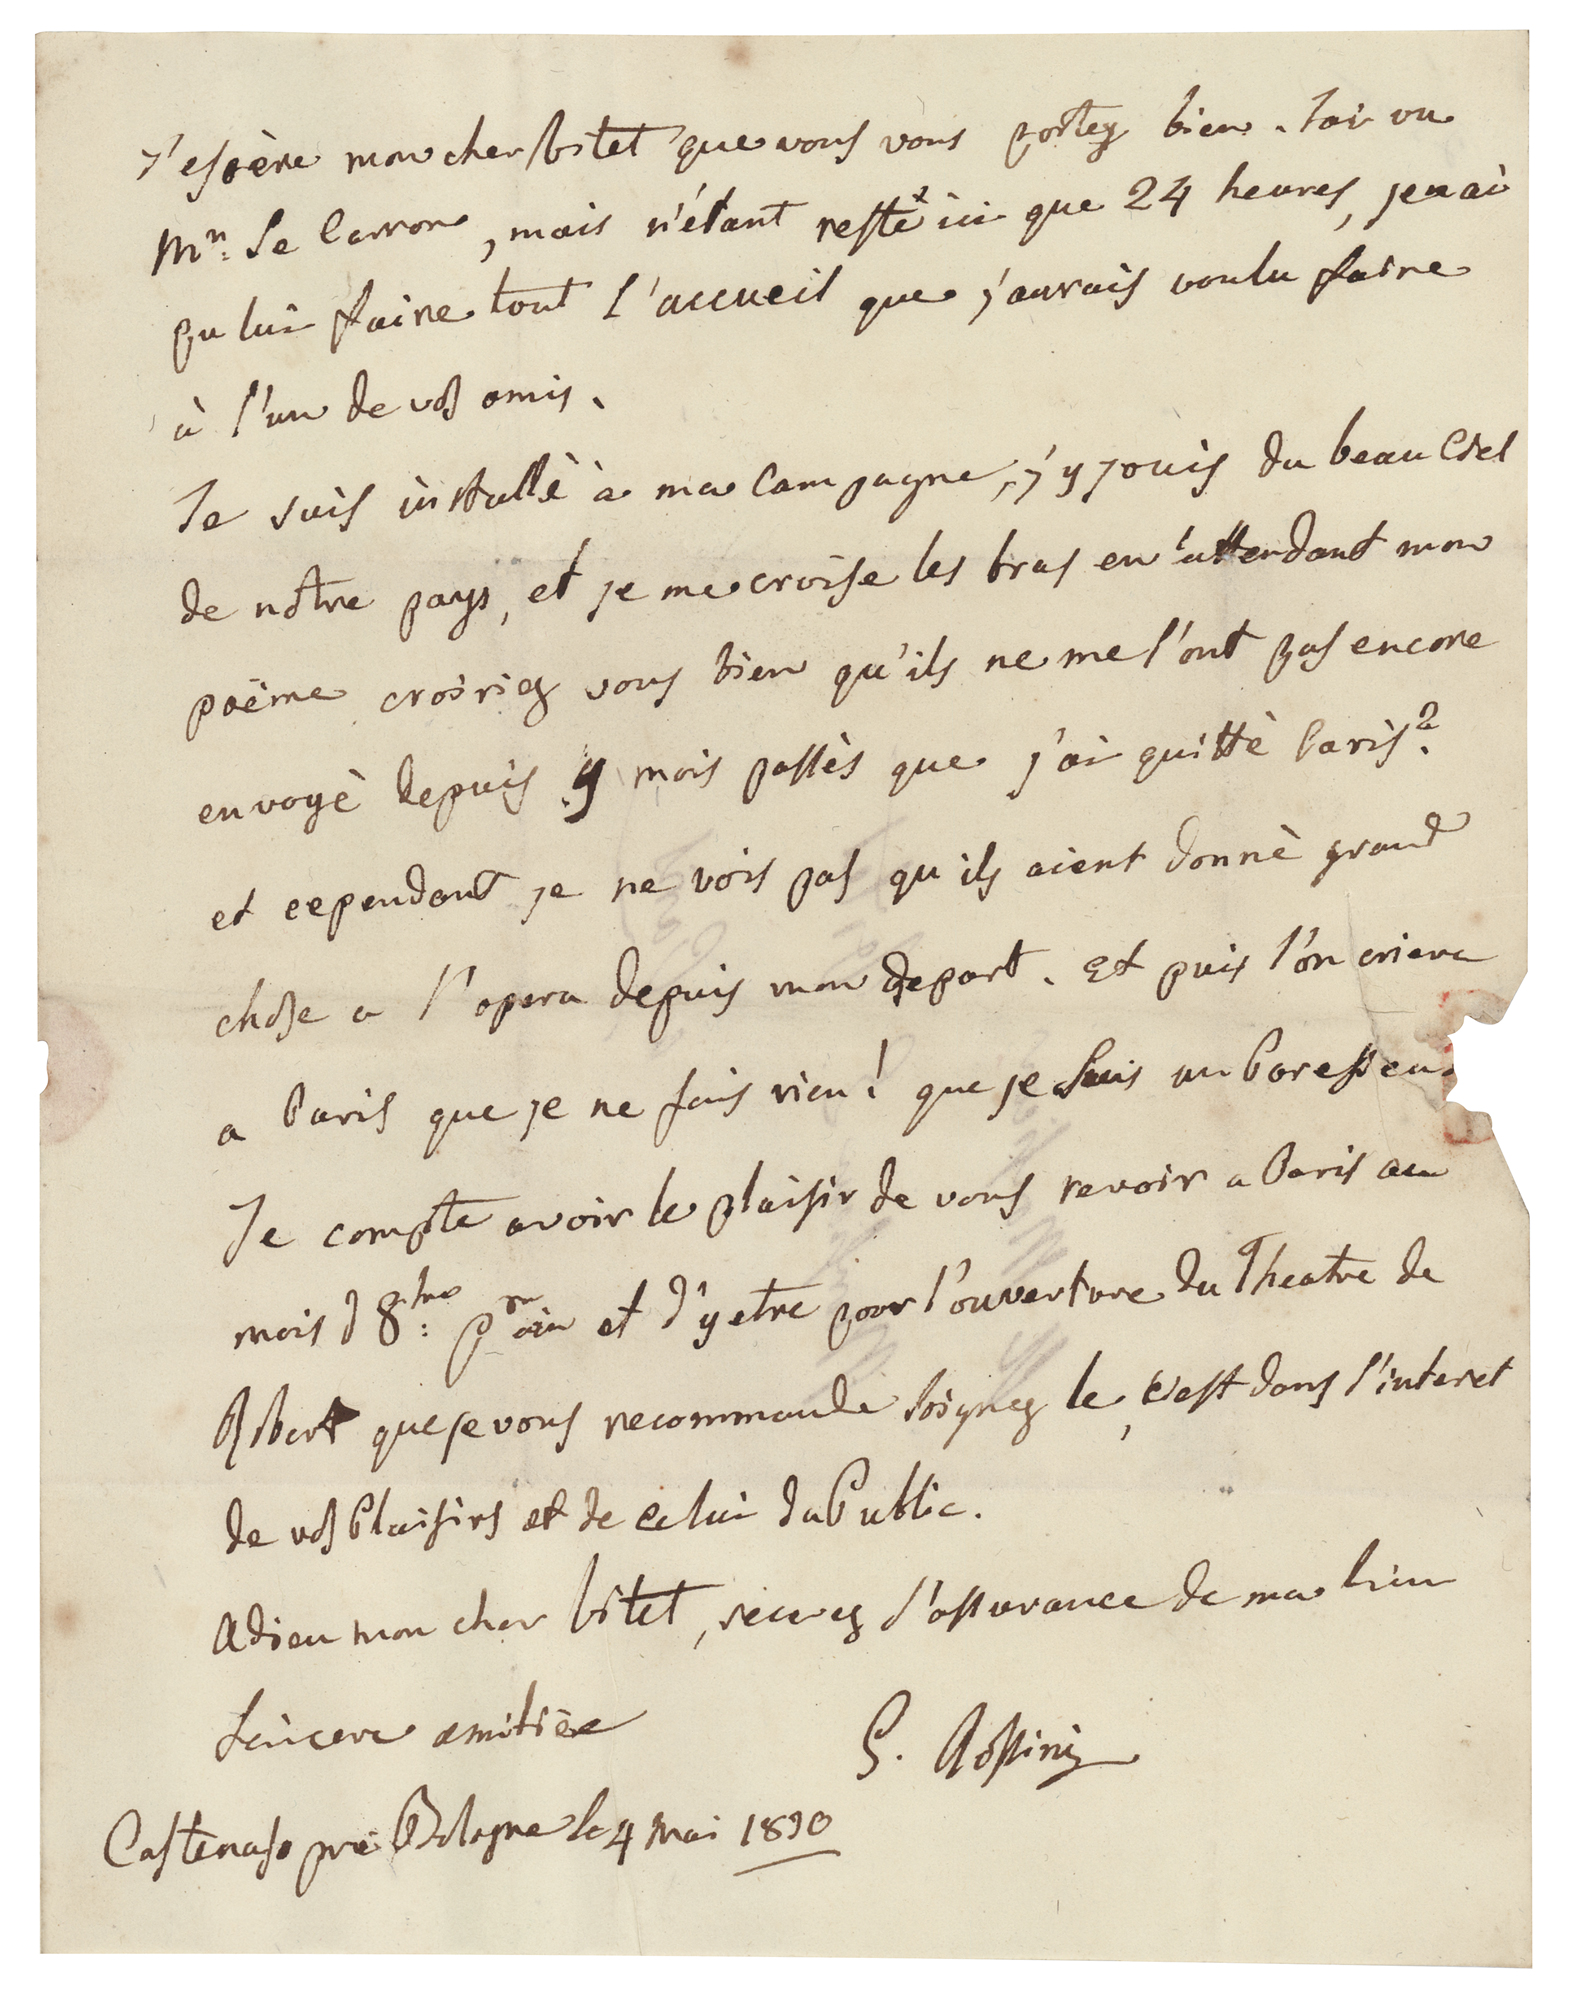 J'espère mon cher Vitet que vous vous portez bien. J'ai vu
Mr. Le Carron, mais n'étant resté ici que 24 heures, je n'ai
pu lui faire tout l'accueil que j'aurais voulu faire
à l'un de vos amis.
Je suis installè à ma Campagne, j'y jouis du beau Ciel
de nôtre pays, et je me croise les bras en attendant mon
poëme croiriez vous bien qu'ils ne me l'ont pas encore
envoyè depuis 9 mois passès que j'ai quittè Paris?
et cependant je ne vois pas qu'ils aient donnè grand
chose a l'opera depuis mon depart. Et puis l'on criera
a Paris que je ne fais rien! que je suis un Paresseux
Je compte avoir le plaisir de vous revoir a Paris au
mois d 8.bre et d'y etre pour l'ouverture du Theatre de
Robert que je vous recommande soignez le, c'est dans l'interet
de vos Plaisirs et de celui du Public.
Adieu mon cher Vitet, recevez l'assurance de ma bien
sincere amitièe
G. Rossini
Castenaso près Bologne le 4 Mai 1830